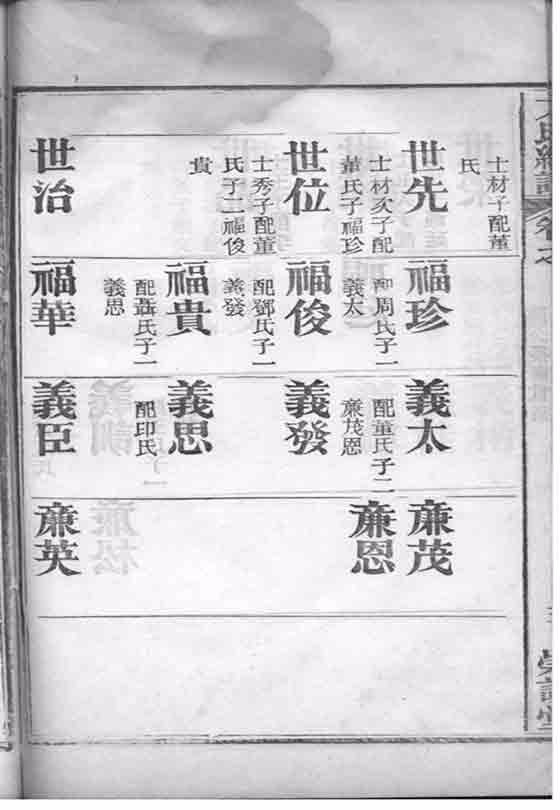 士材子配董
氏
世先
士材次子配
董氏子福珍
世位
士秀子配董
氏子二福俊
貴
世治
福珍
配周氏子一
義太
福俊
配鄧氏子一
義發
福貴
配聶氏子一
義思
福華
義太
配董氏子二
廉茂恩
義發
義思
配印氏
義臣
廉茂
廉恩
廉英